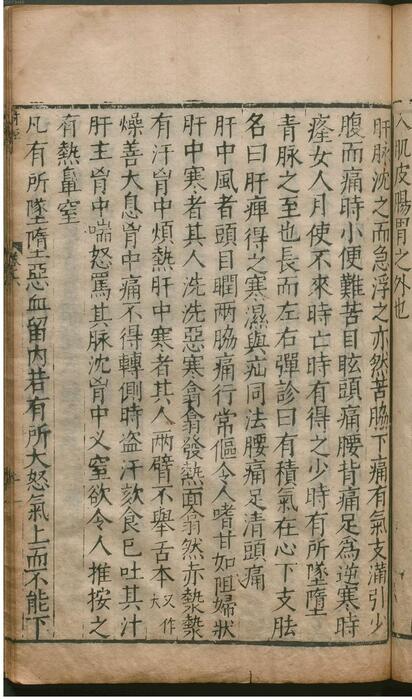 入肌皮腸胃之外也
肝脉沈之而急浮之亦然苦脇下痛有氣支滿引少
腹而痛時小便難苦目眩頭痛腰背痛足爲逆寒時
癃女人月使不來時亡時有得之少時有所墜墮
青脉之至也長而左右彈診曰有積氣在心下支胠
名曰肝痺得之寒濕與疝同法腰痛足清頭痛
肝中風者頭目瞤兩脇痛行常傴令人嗜甘如阻婦狀
肝中寒者其人洗洗惡寒翕翕發熱面翕然赤漐漐
有汗胷中煩熱肝中寒者其人兩臂不舉舌本又作大
燥善大息胷中痛不得轉側時盗汗欬食已吐其汁
肝主胷中喘怒罵其脉沈胷中又窒欲令人推按之
有熱鼻窒
凡有所墜墮惡血留内若有所大怒氣上而不能下